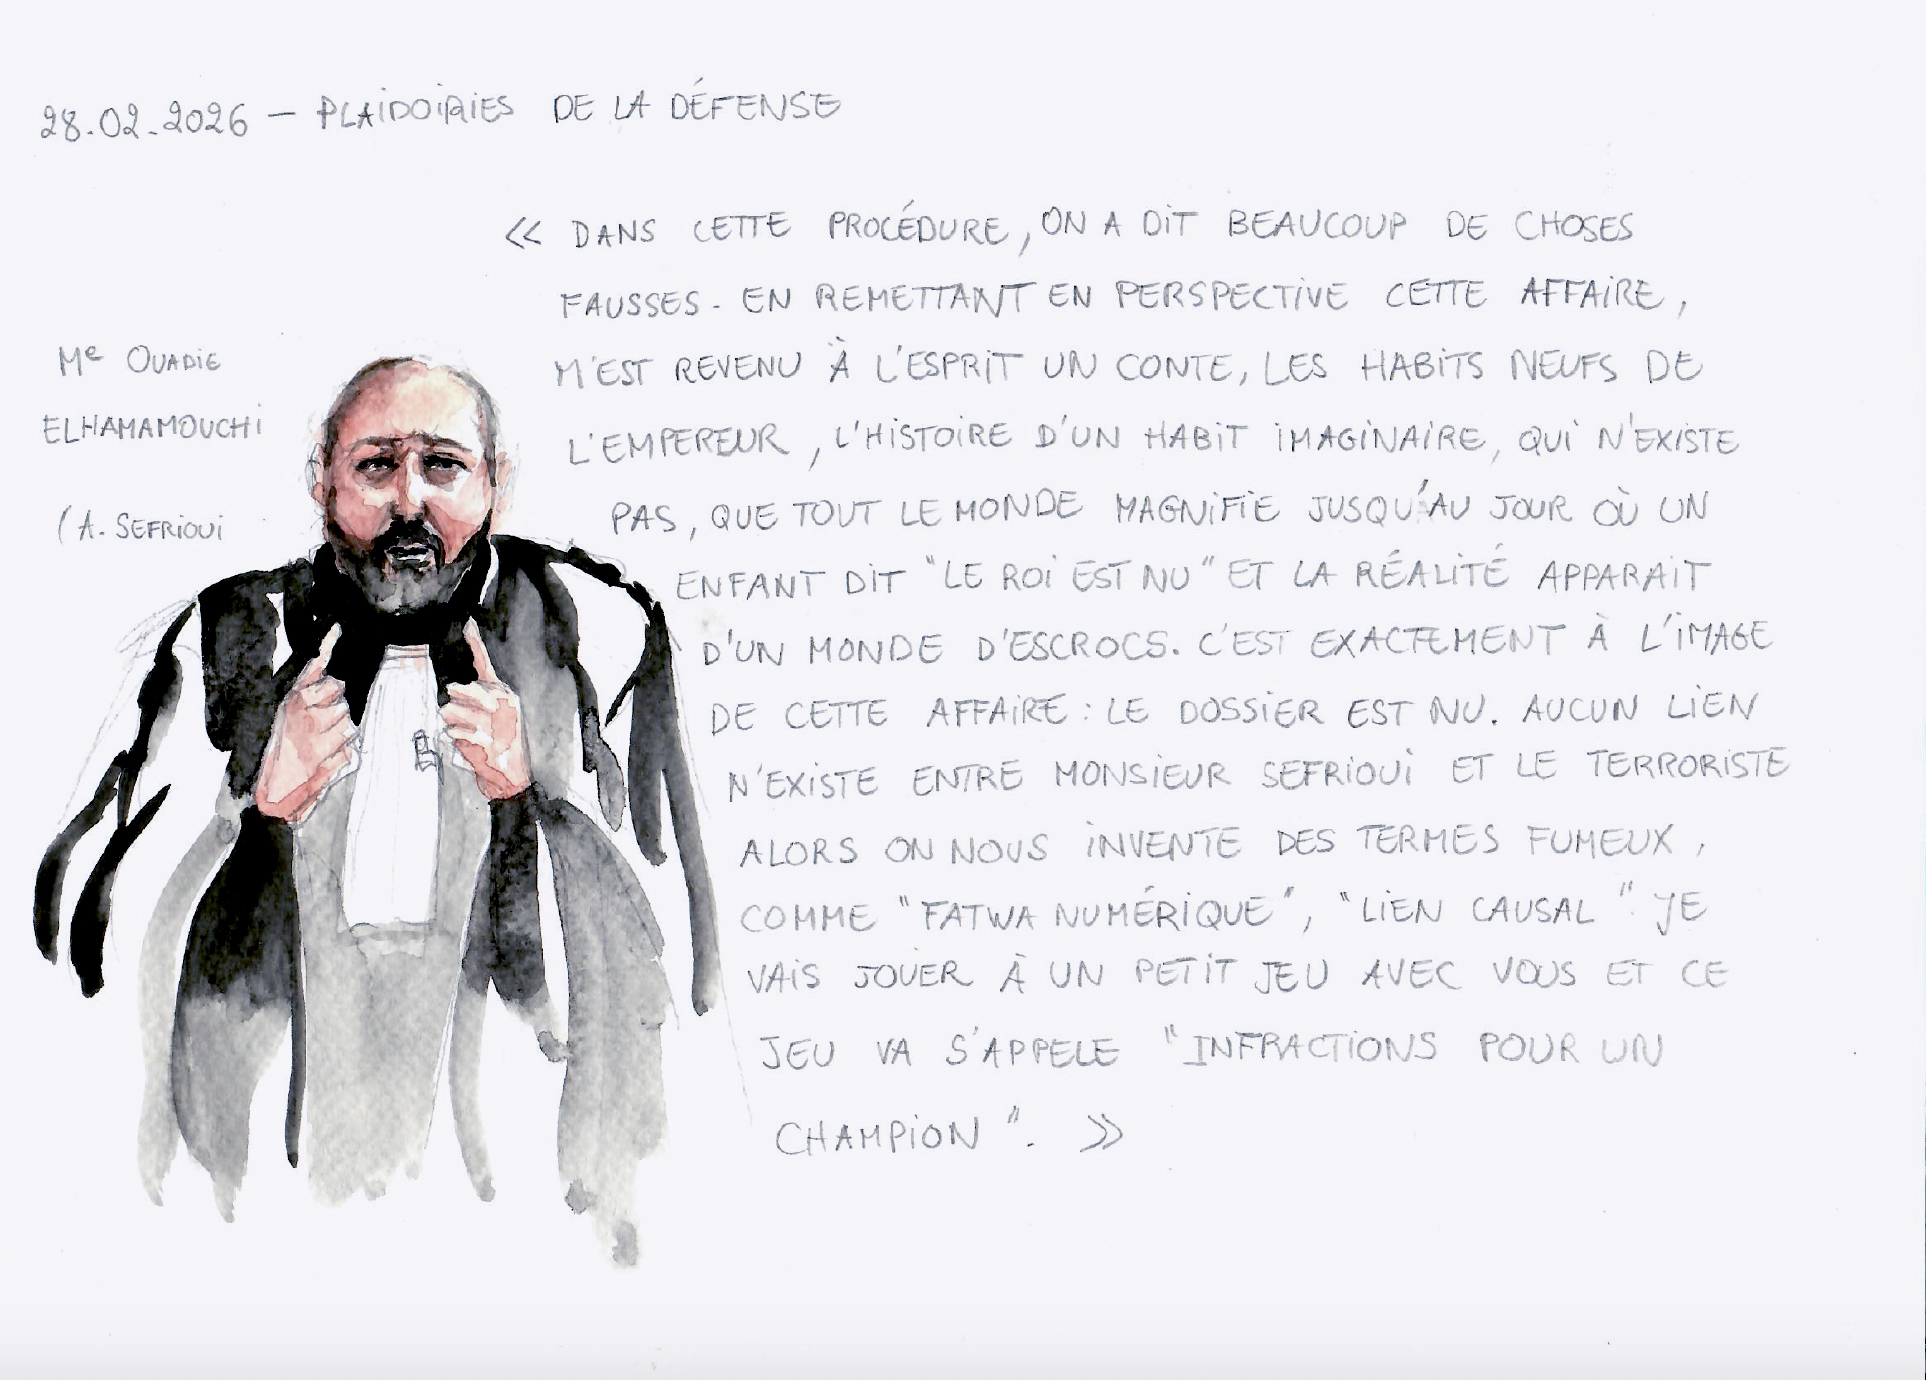 28.02.2026 — PLAIDOIRIES DE LA DÉFENSE
Me OUADIE
ELHAMAMOUCHI
(A. SEFRIOUI
« DANS CETTE PROCÉDURE, ON A DIT BEAUCOUP DE CHOSES
FAUSSES. EN REMETTANT EN PERSPECTIVE CETTE AFFAIRE,
M'EST REVENU À L'ESPRIT UN CONTE, LES HABITS NEUFS DE
L'EMPEREUR, L'HISTOIRE D'UN HABIT IMAGINAIRE, QUI N'EXISTE
PAS, QUE TOUT LE MONDE MAGNIFIE JUSQU'AU JOUR OÙ UN
ENFANT DIT "LE ROI EST NU" ET LA RÉALITÉ APPARAIT
D'UN MONDE D'ESCROCS. C'EST EXACTEMENT À L'IMAGE
DE CETTE AFFAIRE : LE DOSSIER EST NU. AUCUN LIEN
N'EXISTE ENTRE MONSIEUR SEFRIOUI ET LE TERRORISTE
ALORS ON NOUS INVENTE DES TERMES FUMEUX,
COMME "FATWA NUMÉRIQUE", "LIEN CAUSAL". JE
VAIS JOUER À UN PETIT JEU AVEC VOUS ET CE
JEU VA S'APPELE "INFRACTIONS POUR UN
CHAMPION". »